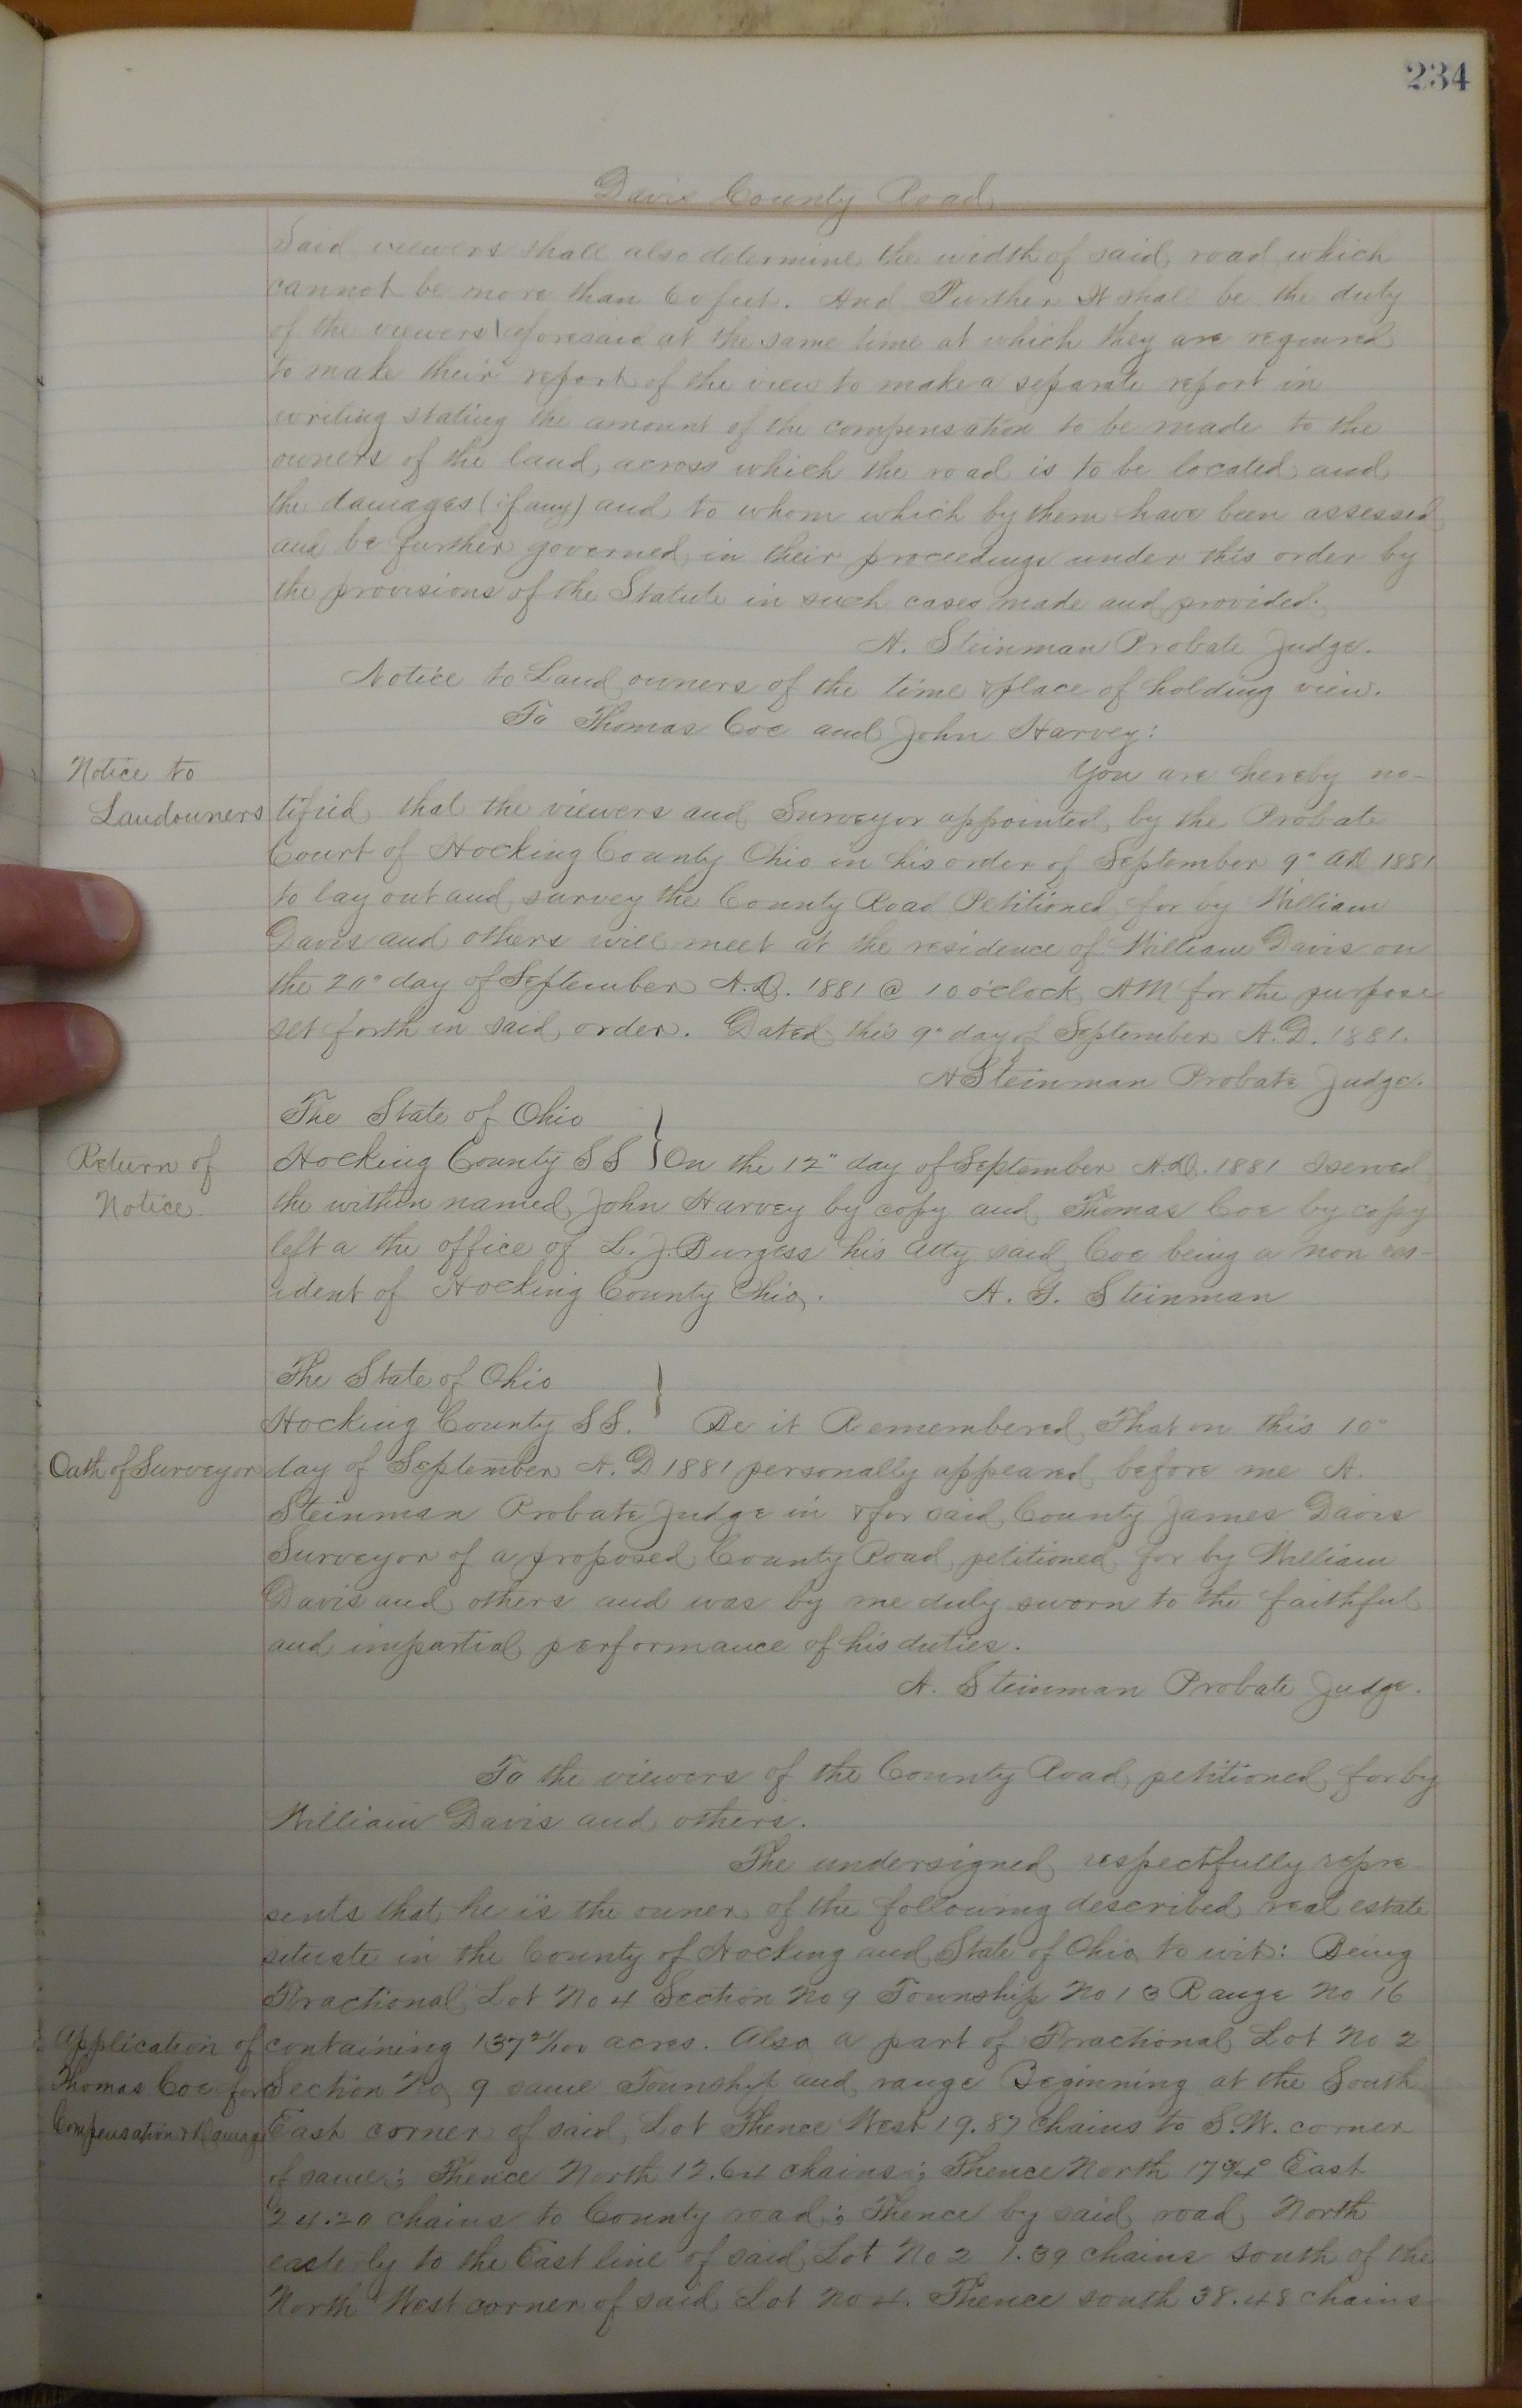 234
Davis County Road
Said viewers shall also determine the width of said road which
cannot be more than 60 feet. And Further It shall be the duty
of the viewers aforesaid at the same time at which they are required
to make their report of the view to make a separate report in
writing stating the amount of the compensation to be made to the
owners of the land across which the road is to be located and
the damages (if any) and to whom which by them have been assessed
and be further governed in their proceedings under this order by
the provisions of the Statute in such cases made and provided.
A. Steinman Probate Judge.
Notice to Land owners of the time & place of holding view.
To Thomas Coe and John Harvey:
Notice to
Landowners
You are hereby no-
tified that the viewers and Surveyor appointed by the Probate
Court of Hocking County Ohio in his order of September 9" AD 1881
to lay out and survey the County Road Petitioned for by William
Davis and others will meet at the residence of William Davis on
the 20" day of September A.D. 1881 @ 10 o'clock AM for the purpose
set forth in said order. Dated this 9" day of September A.D. 1881.
A Steinman Probate Judge.
The State of Ohio
Return of
Notice.
Hocking County SS } On the 12" day of September A.D. 1881 I served
the within named John Harvey by copy and Thomas Coe by copy
left a the office of L. J. Burgess his Atty said Coe being a non res-
ident of Hocking County Ohio. A. G. Steinman
The State of Ohio }
Hocking County SS. Be it Remembered That on this 10"
Oath of Surveyor
day of September A.D 1881 personally appeared before me A.
Steinman Probate Judge in & for said County James Davis
Surveyor of a proposed County Road petitioned for by William
Davis and others and was by me duly sworn to the faithful
and impartial performance of his duties.
A. Steinman Probate Judge.
To the viewers of the County Road petitioned for by
William Davis and others.
The undersigned respectfully repre
sents that he is the owner of the following described real estate
situate in the County of Hocking and State of Ohio to wit: Being
Fractional Lot No 4 Section No 9 Township No 13 Range No 16
Application of
Thomas Coe for
Compensation & Damage
containing 137 21/100 acres. Also a part of Fractional Lot No 2
Section No 9 same Township and range Beginning at the South
East corner of said Lot Thence West 19.87 chains to S.W. corner
of same; Thence North 12.64 chains; Thence North 17 3/4° East
24.20 chains to County road; Thence by said road North
easterly to the East line of said Lot No 2 1.39 chains south of the
North West corner of said Lot No 4. Thence south 38.48 chains